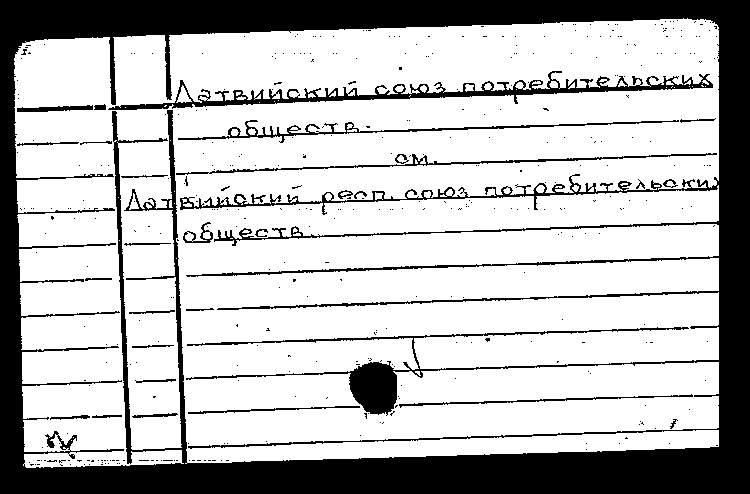 Латвийский союз потребительских
обществ.
см.
Латвийский респ. союз потребительских
обществ.